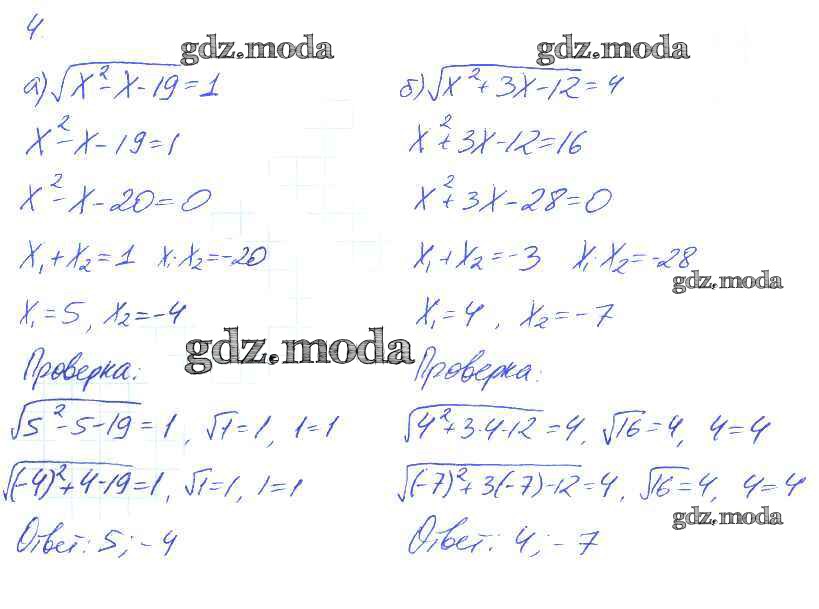 4.
gdz.moda gdz.moda
а) √(x² - x - 19) = 1
x² - x - 19 = 1
x² - x - 20 = 0
x₁ + x₂ = 1 x₁·x₂ = -20
x₁ = 5, x₂ = -4
gdz.moda
Проверка:
√(5² - 5 - 19) = 1, √1 = 1, 1 = 1
√((-4)² + 4 - 19) = 1, √1 = 1, 1 = 1
Ответ: 5; -4
б) √(x² + 3x - 12) = 4
x² + 3x - 12 = 16
x² + 3x - 28 = 0
x₁ + x₂ = -3 x₁·x₂ = -28
gdz.moda
x₁ = 4, x₂ = -7
Проверка:
√(4² + 3·4 - 12) = 4, √16 = 4, 4 = 4
√((-7)² + 3(-7) - 12) = 4, √16 = 4, 4 = 4
gdz.moda
Ответ: 4; -7